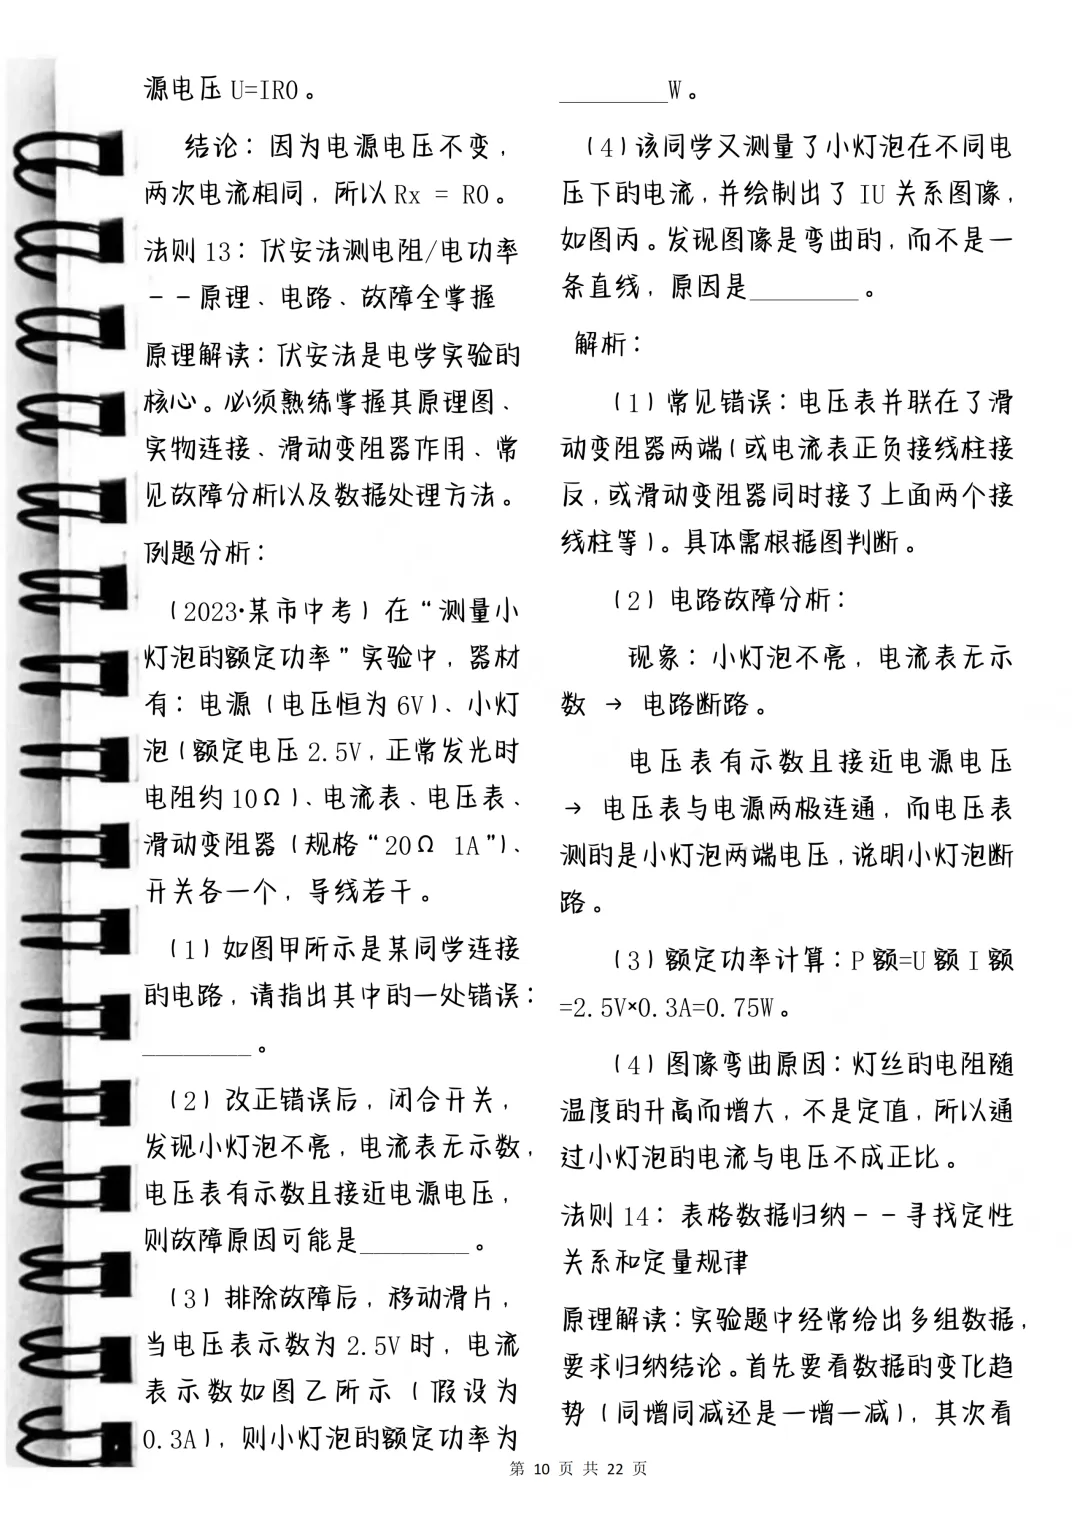 源电压 U=IR0。
结论：因为电源电压不变，
两次电流相同，所以 Rx = R0。
法则 13：伏安法测电阻/电功率
--原理、电路、故障全掌握
原理解读：伏安法是电学实验的
核心。必须熟练掌握其原理图、
实物连接、滑动变阻器作用、常
见故障分析以及数据处理方法。
例题分析：
（2023·某市中考）在“测量小
灯泡的额定功率”实验中，器材
有：电源（电压恒为 6V）、小灯
泡（额定电压 2.5V，正常发光时
电阻约 10Ω）、电流表、电压表、
滑动变阻器（规格“20Ω 1A”）、
开关各一个，导线若干。
（1）如图甲所示是某同学连接
的电路，请指出其中的一处错误：
________。
（2）改正错误后，闭合开关，
发现小灯泡不亮，电流表无示数，
电压表有示数且接近电源电压，
则故障原因可能是________。
（3）排除故障后，移动滑片，
当电压表示数为 2.5V 时，电流
表示数如图乙所示（假设为
0.3A），则小灯泡的额定功率为
________W。
（4）该同学又测量了小灯泡在不同电
压下的电流，并绘制出了 IU 关系图像，
如图丙。发现图像是弯曲的，而不是一
条直线，原因是________。
解析：
（1）常见错误：电压表并联在了滑
动变阻器两端（或电流表正负接线柱接
反，或滑动变阻器同时接了上面两个接
线柱等）。具体需根据图判断。
（2）电路故障分析：
现象：小灯泡不亮，电流表无示
数 → 电路断路。
电压表有示数且接近电源电压
→ 电压表与电源两极连通，而电压表
测的是小灯泡两端电压，说明小灯泡断
路。
（3）额定功率计算：P 额=U 额 I 额
=2.5V×0.3A=0.75W。
（4）图像弯曲原因：灯丝的电阻随
温度的升高而增大，不是定值，所以通
过小灯泡的电流与电压不成正比。
法则 14：表格数据归纳--寻找定性
关系和定量规律
原理解读：实验题中经常给出多组数据，
要求归纳结论。首先要看数据的变化趋
势（同增同减还是一增一减），其次看
第 10 页 共 22 页